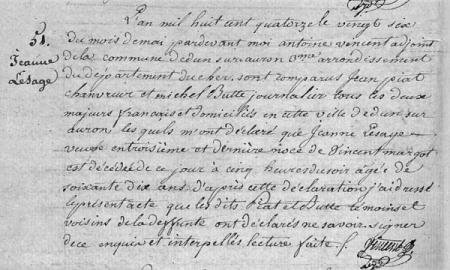 L'an mil huit cent quatorze le vingt six
51. du mois de mai pardevant moi antoine vincent adjoint
Jeanne de la commune de dun sur auron 3me arrondissement
Lesage du departement du cher. sont comparus jean piat
chanvreur et michel Butte journalier tous les deux
majeurs français et domiciliés en cette ville de dun sur
auron. les quels m'ont déclaré que Jeanne Lesage
veuve en troisième et dernière noce de Vincent margot
est décédée de ce jour a cinq heures du soir agée de
soixante dix ans. d'apres cette déclaration j'ai dressé
le present acte que les dits Piat et Butte temoins et
voisins de la deffunte ont déclarés ne savoir signer
de ce enquis et interpellés lecture faite /.
Vincent